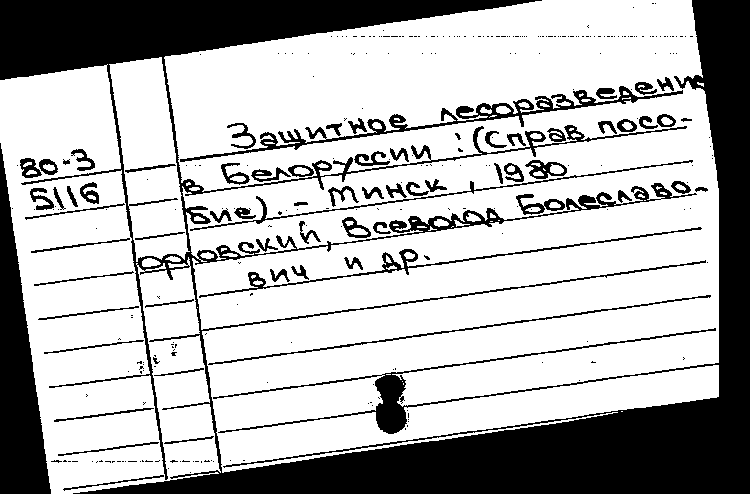 80-3
5116
Защитное лесоразведение
в Белоруссии : (Справ. посо-
бие). - Минск, 1980.
Орловский, Всеволод Болеславо-
вич и др.